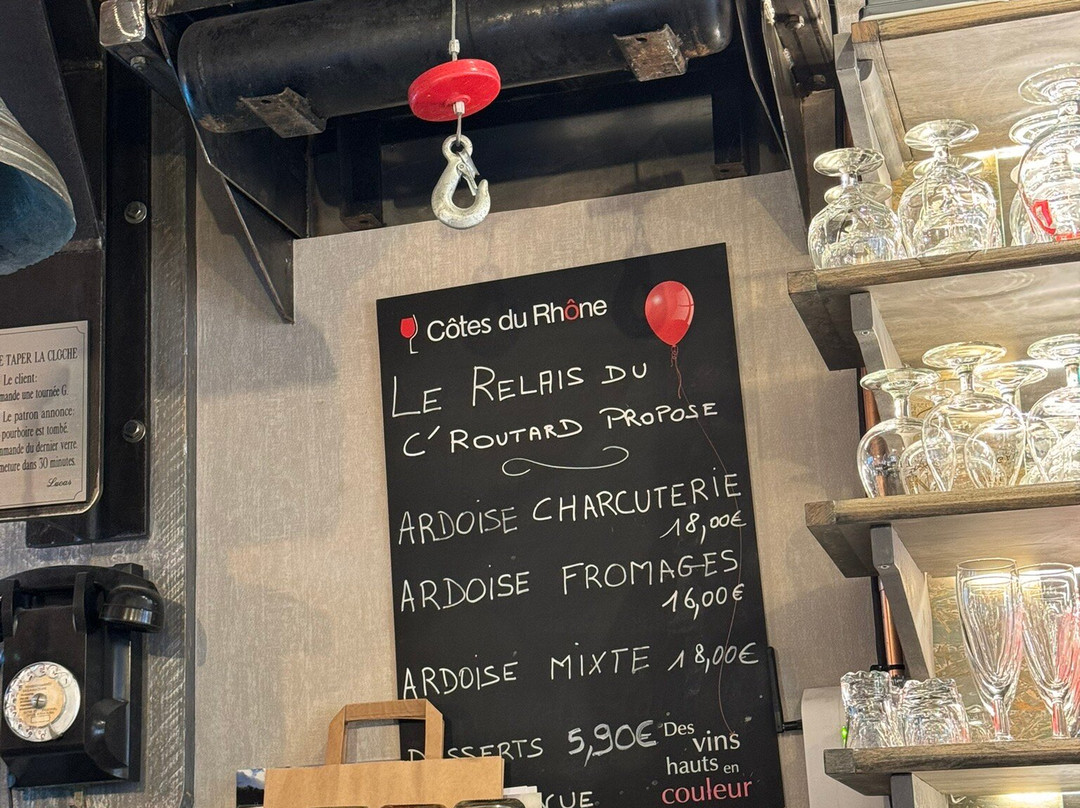 E TAPER LA CLOCHE
Le client:
mande une tournée G
Le patron annonce:
pourboire est tombé.
mmande du dernier verre.
meture dans 30 minutes.
Lucas
Côtes du Rhône
LE RELAIS DU
C'ROUTARD PROPOSE
ARDOISE CHARCUTERIE
18,00€
ARDOISE FROMAGES
16,00€
ARDOISE MIXTE 18,00€
DESSERTS 5,90€
Des
vins
hauts en
couleur